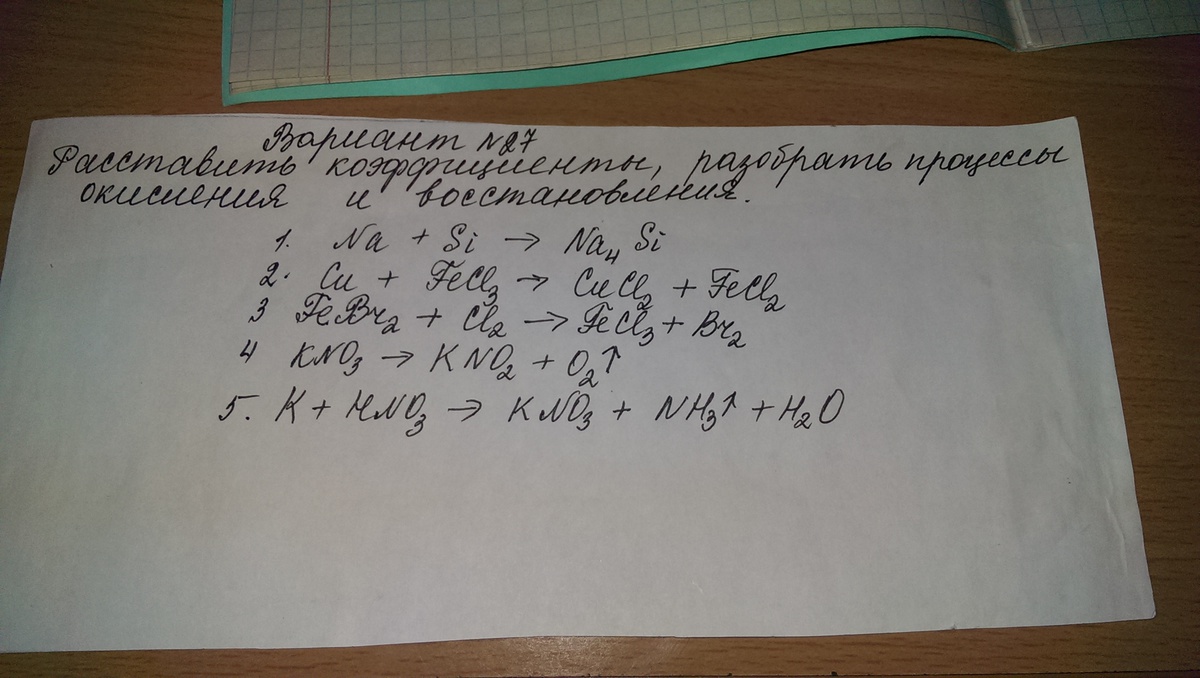 Вариант №27
Расставить коэффициенты, разобрать процессы
окисления и восстановления.
1. Na + Si → Na₄Si
2. Cu + FeCl₃ → CuCl₂ + FeCl₂
3 FeBr₂ + Cl₂ → FeCl₃ + Br₂
4 KNO₃ → KNO₂ + O₂↑
5. K + HNO₃ → KNO₃ + NH₃↑ + H₂O